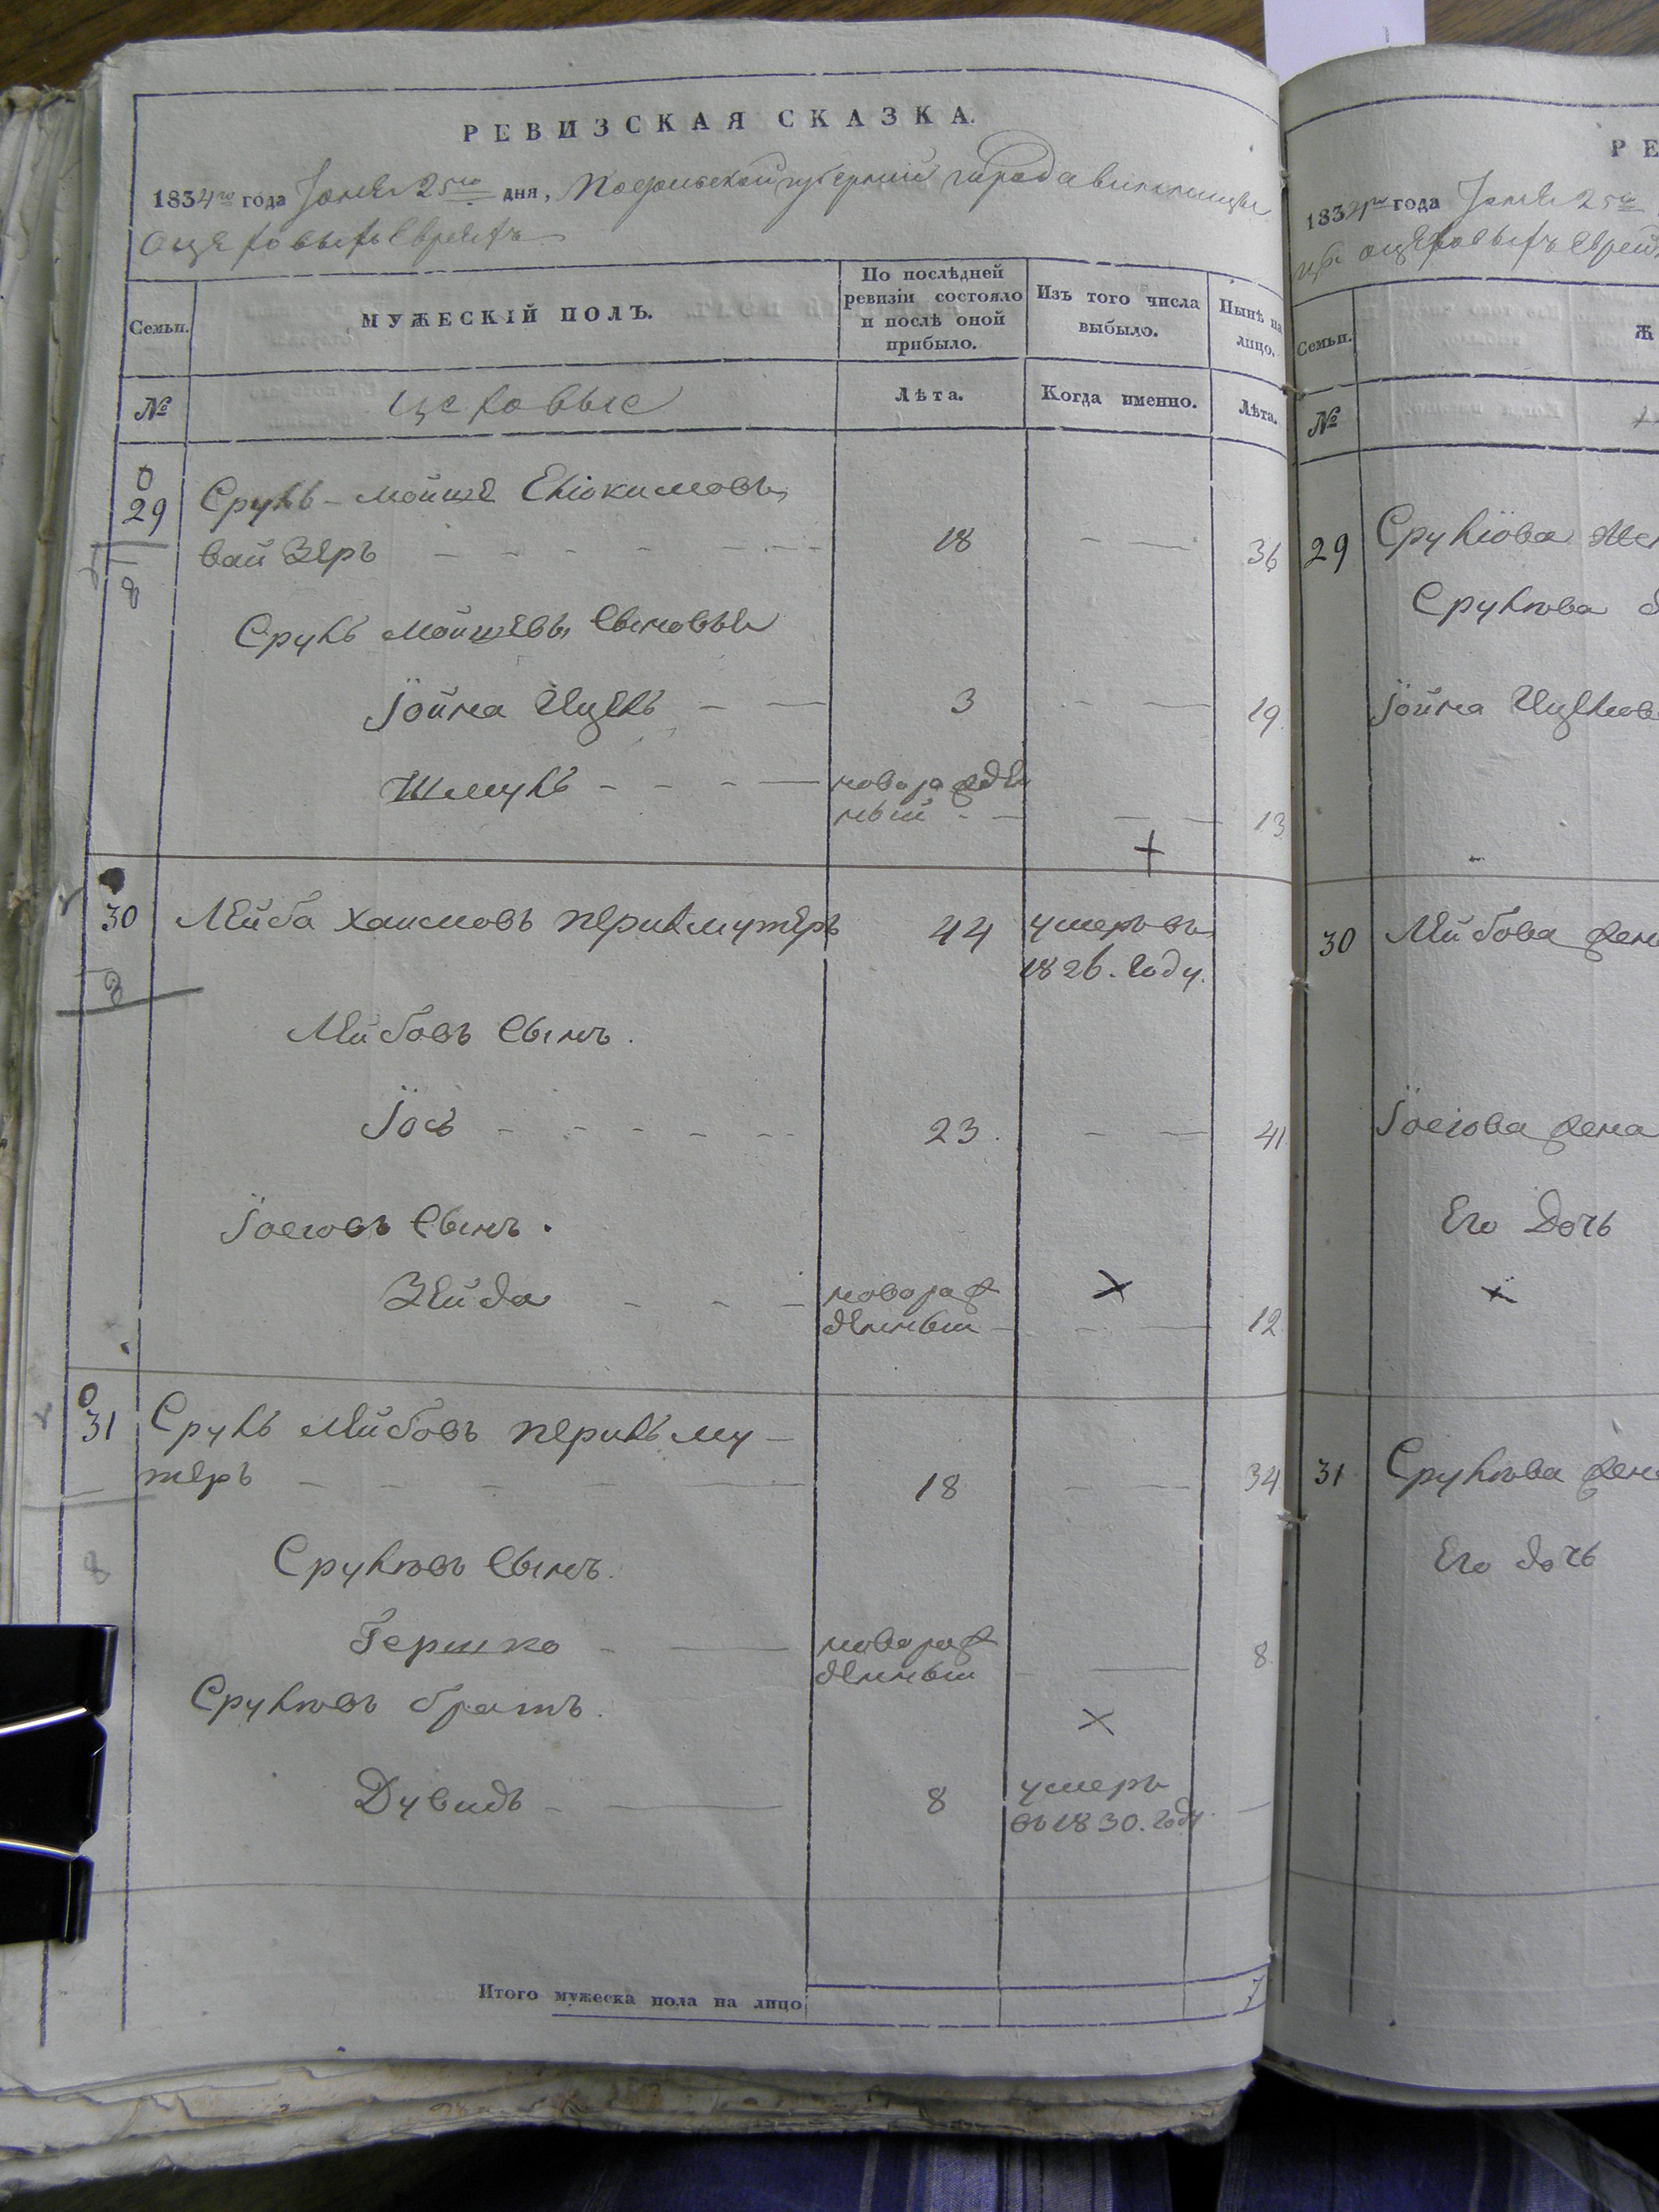 РЕВИЗСКАЯ СКАЗКА.
1834го года Іюня 25го дня, Подольской губерніи города винницы
о цеховыхъ евреяхъ
Семьи.
МУЖЕСКІЙ ПОЛЪ.
По послѣдней ревизіи состояло и послѣ оной прибыло.
Изъ того числа выбыло.
Нынѣ на лицо.
№
цеховые
Лѣта.
Когда именно.
Лѣта.
29 Сруль-мойше
вайзеръ 18 36
Сруль мойшевы сыновья
Іойна Ицель 3 19
Шмуль новорожден
ный 13
30 Лейба хаимовъ перилмутеръ 44 умеръ въ
1826. году.
Лейбовъ сынъ.
Іось 23. 41
Іосiовъ сынъ.
Зейда новорож
денный 12
31 Сруль Лейбовъ перильму-
теръ 18 34
Срулiовъ сынъ.
Гершко новорож
денный 8
Срулiовъ братъ.
Дувидъ 8 умеръ
въ 1830. году
Итого мужеска пола на лицо 7
РЕ
1834го года Іюня 25го
цы о цеховыхъ еврей
Семьи.
Ж
№
29 Сруліова же
Срулiова
Іойна Ицкова
30 Лейбова жена
Іосiова жена
Его Дочь
31 Срулiова жена
Его дочь